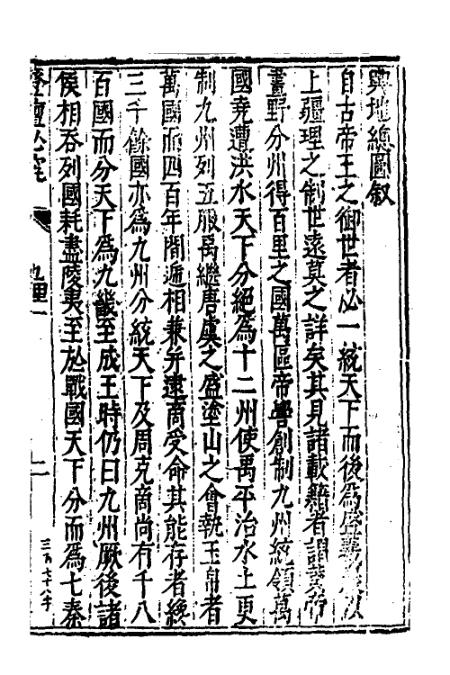 輿地總圖叙
自古帝王之御世者必一統天下而後為盛羲農以
上疆理之制世遠莫之詳矣其見諸載籍者謂黃帝
畫野分州得百里之國萬區帝嚳創制九州統領萬
國堯遭洪水天下分絕為十二州使禹平治水土更
制九州列五服禹繼唐虞之盛塗山之會執玉帛者
萬國而四百年間遞相兼并逮商受命其能存者纔
三千餘國亦為九州分統天下及周克商尚有千八
百國而分天下為九畿至成王時仍曰九州厥後諸
侯相吞列國耗盡陵夷至於戰國天下分而為七秦
登壇必究
地理一
二
三百六十八千